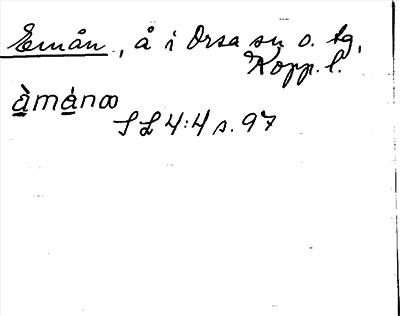 Emån, å i Orsa sn o. tg,
Kopp. l.
àmánꝏ
S L 4:4 s. 97